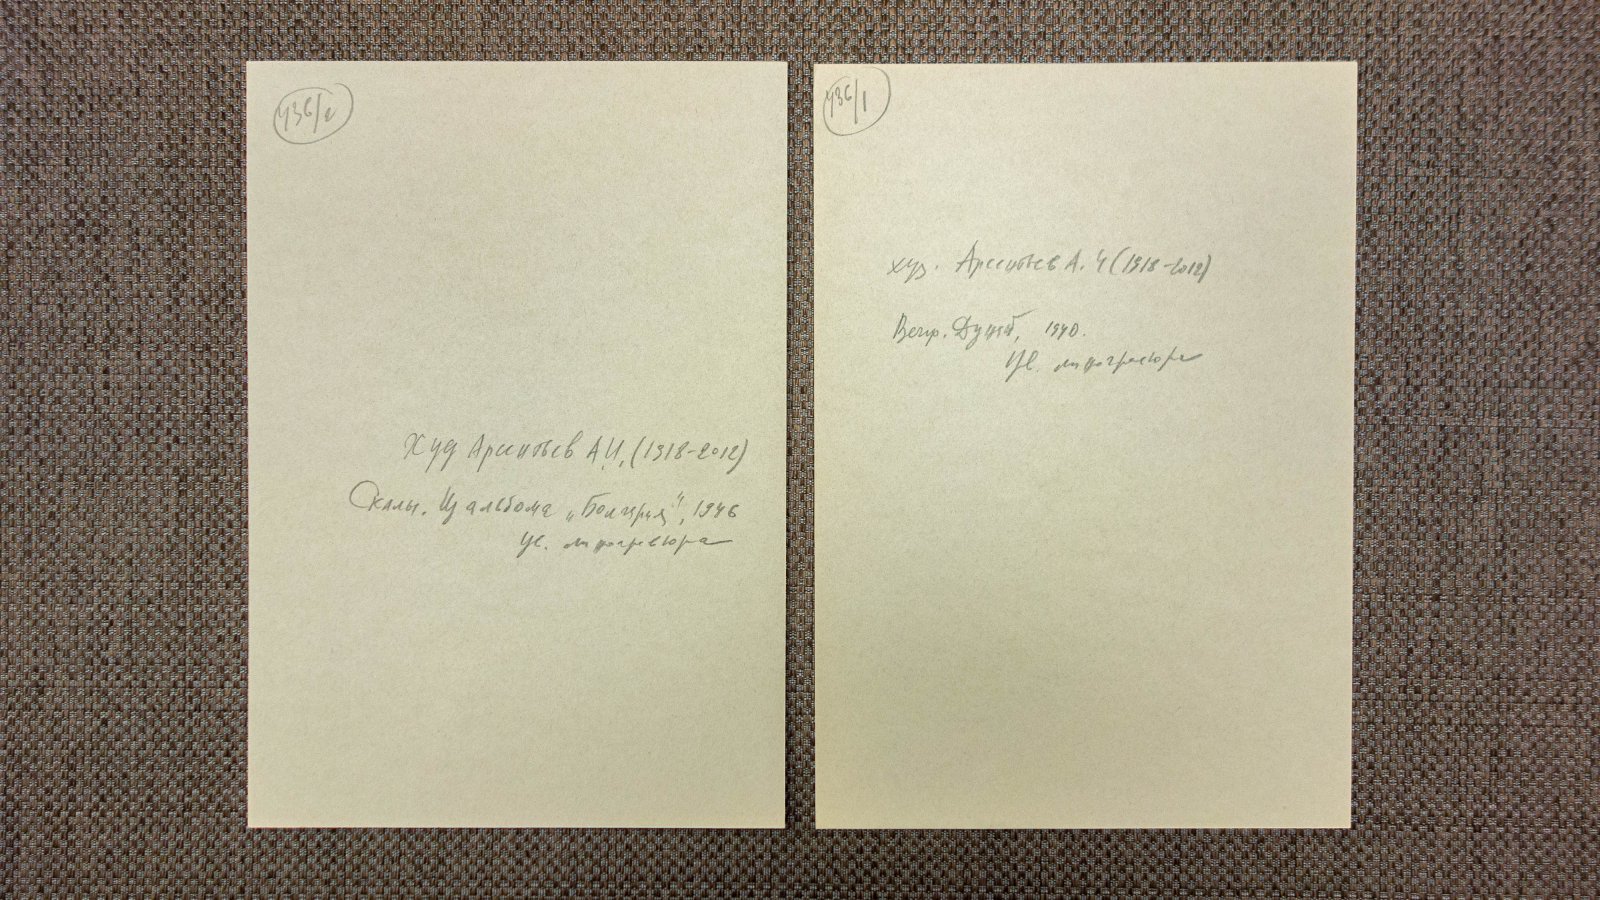 436/2
Худ Арсентьев А.И. (1918-2012)
Скалы. Из альбома „Болгария", 1946
Цв. линогравюра
436/1
худ. Арсентьев А. И (1918-2012)
1940.
Цв. линогравюра